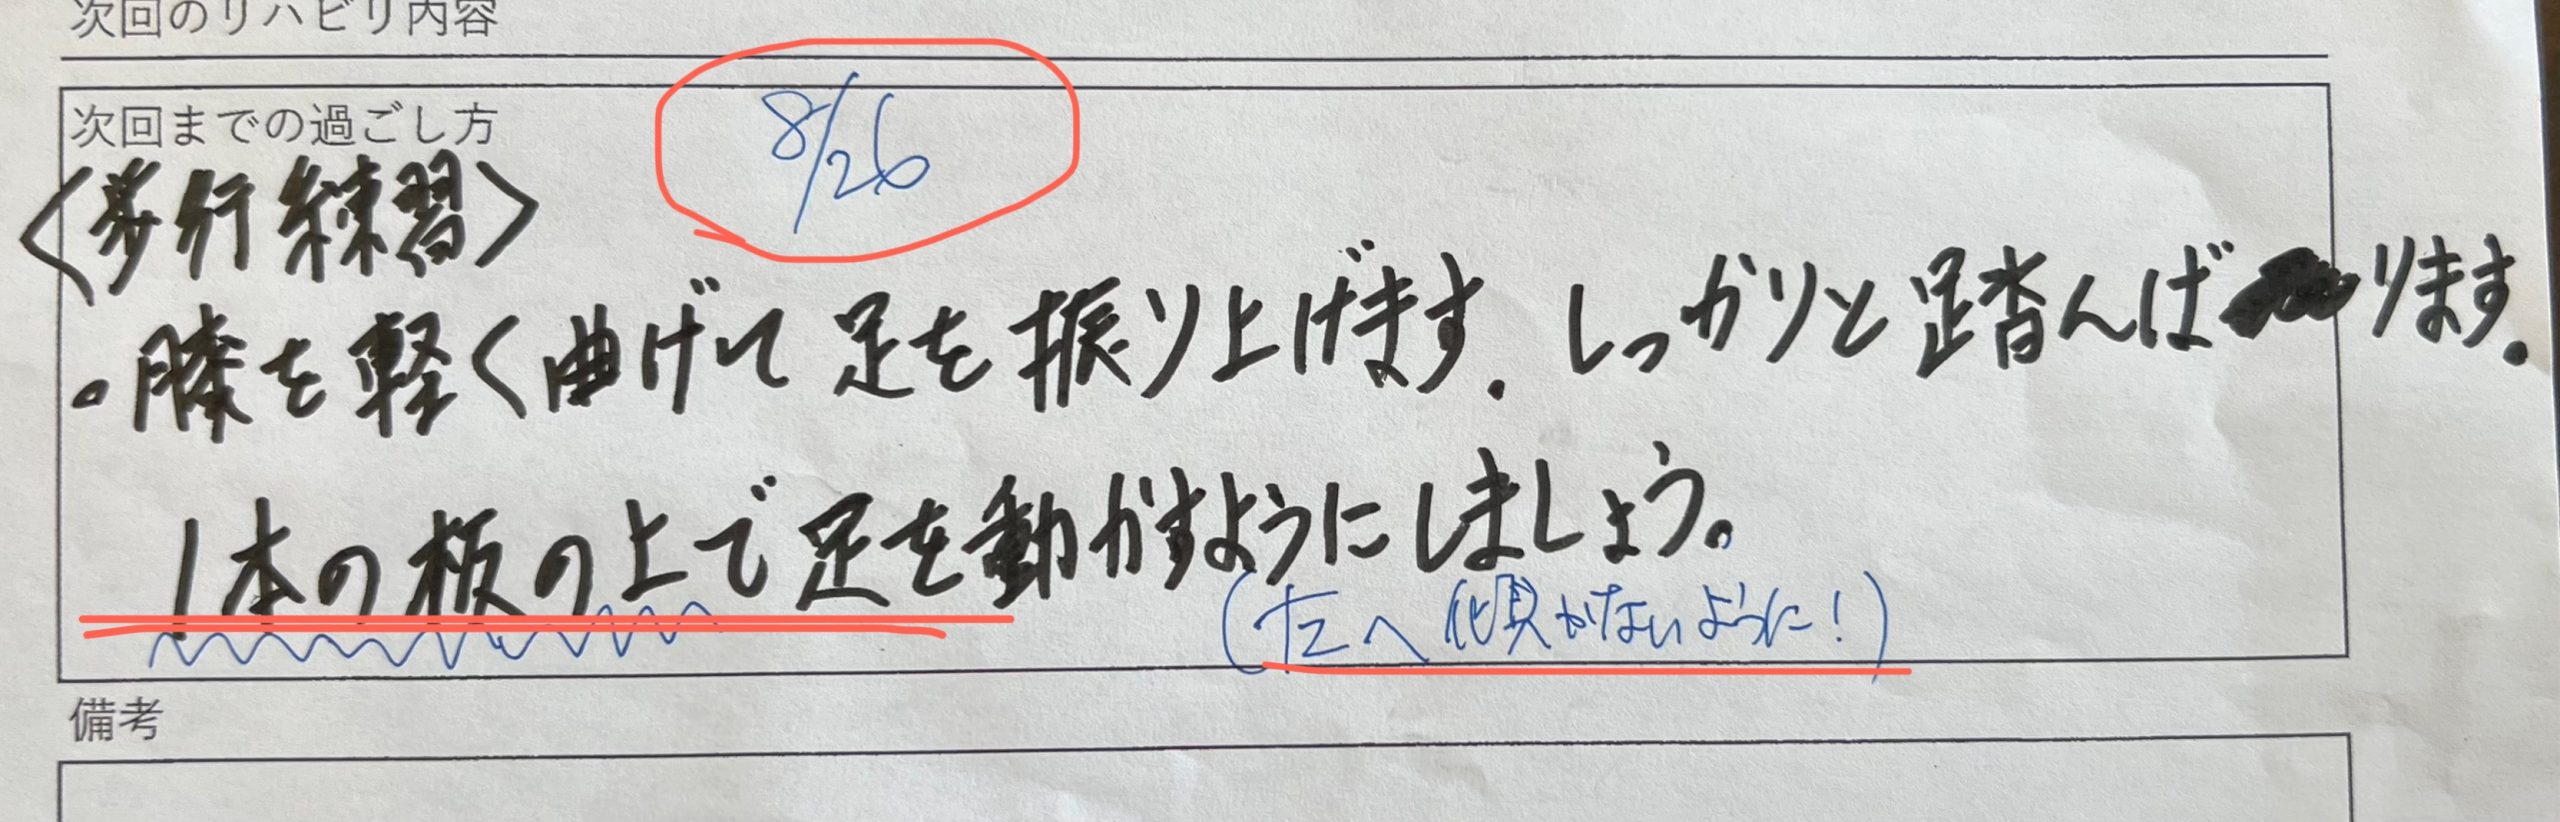 次回のリハビリ内容
次回までの過ごし方
8/26
〈歩行練習〉
・膝を軽く曲げて足を振り上げます. しっかりと足踏んばります.
1本の板の上で足を動かすようにしましょう。
(左へ傾かないように!)
備考